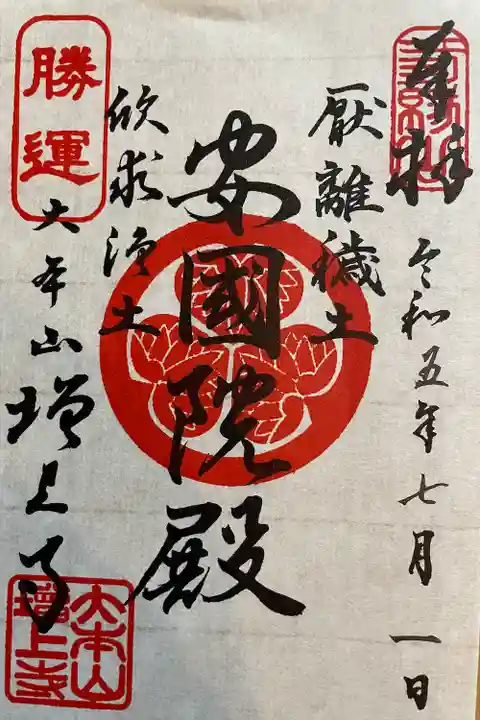 奉拝
令和五年七月一日
厭離穢土
安國院殿
欣求浄土
勝運
大本山増上寺
大本山
増上寺